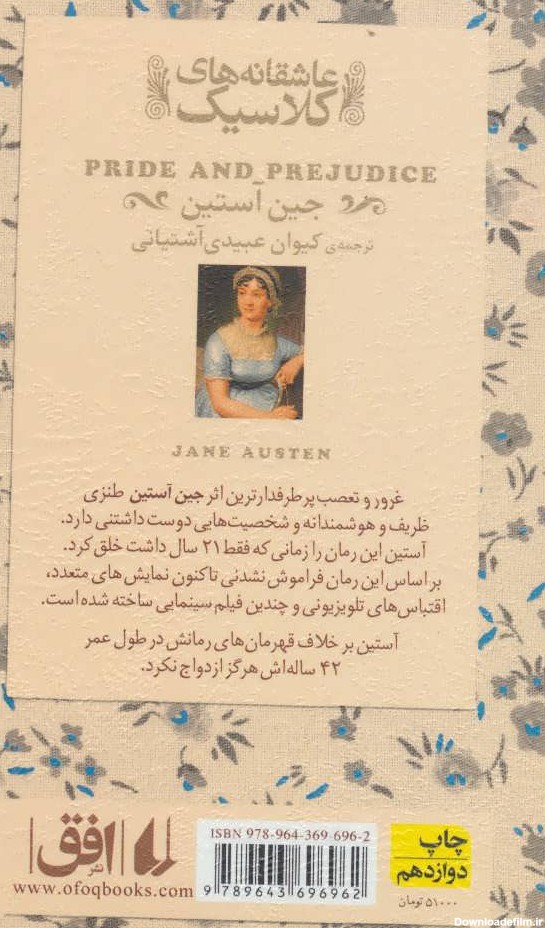 عاشقانه‌های
کلاسیک
PRIDE AND PREJUDICE
جین آستین
ترجمه‌ی کیوان عبیدی آشتیانی
JANE AUSTEN
غرور و تعصب پرطرفدارترین اثر جین آستین طنزی
ظریف و هوشمندانه و شخصیت‌هایی دوست داشتنی دارد.
آستین این رمان را زمانی که فقط ۲۱ سال داشت خلق کرد.
بر اساس این رمان فراموش نشدنی تاکنون نمایش های متعدد،
اقتباس‌های تلویزیونی و چندین فیلم سینمایی ساخته شده است.
آستین بر خلاف قهرمان‌های رمانش در طول عمر
۴۲ ساله‌اش هرگز ازدواج نکرد.
افق
نشر
www.ofoqbooks.com
ISBN 978-964-369-696-2
9 789643 696962
چاپ
دوازدهم
۵۱۰۰۰ تومان
Downloadefilm.ir